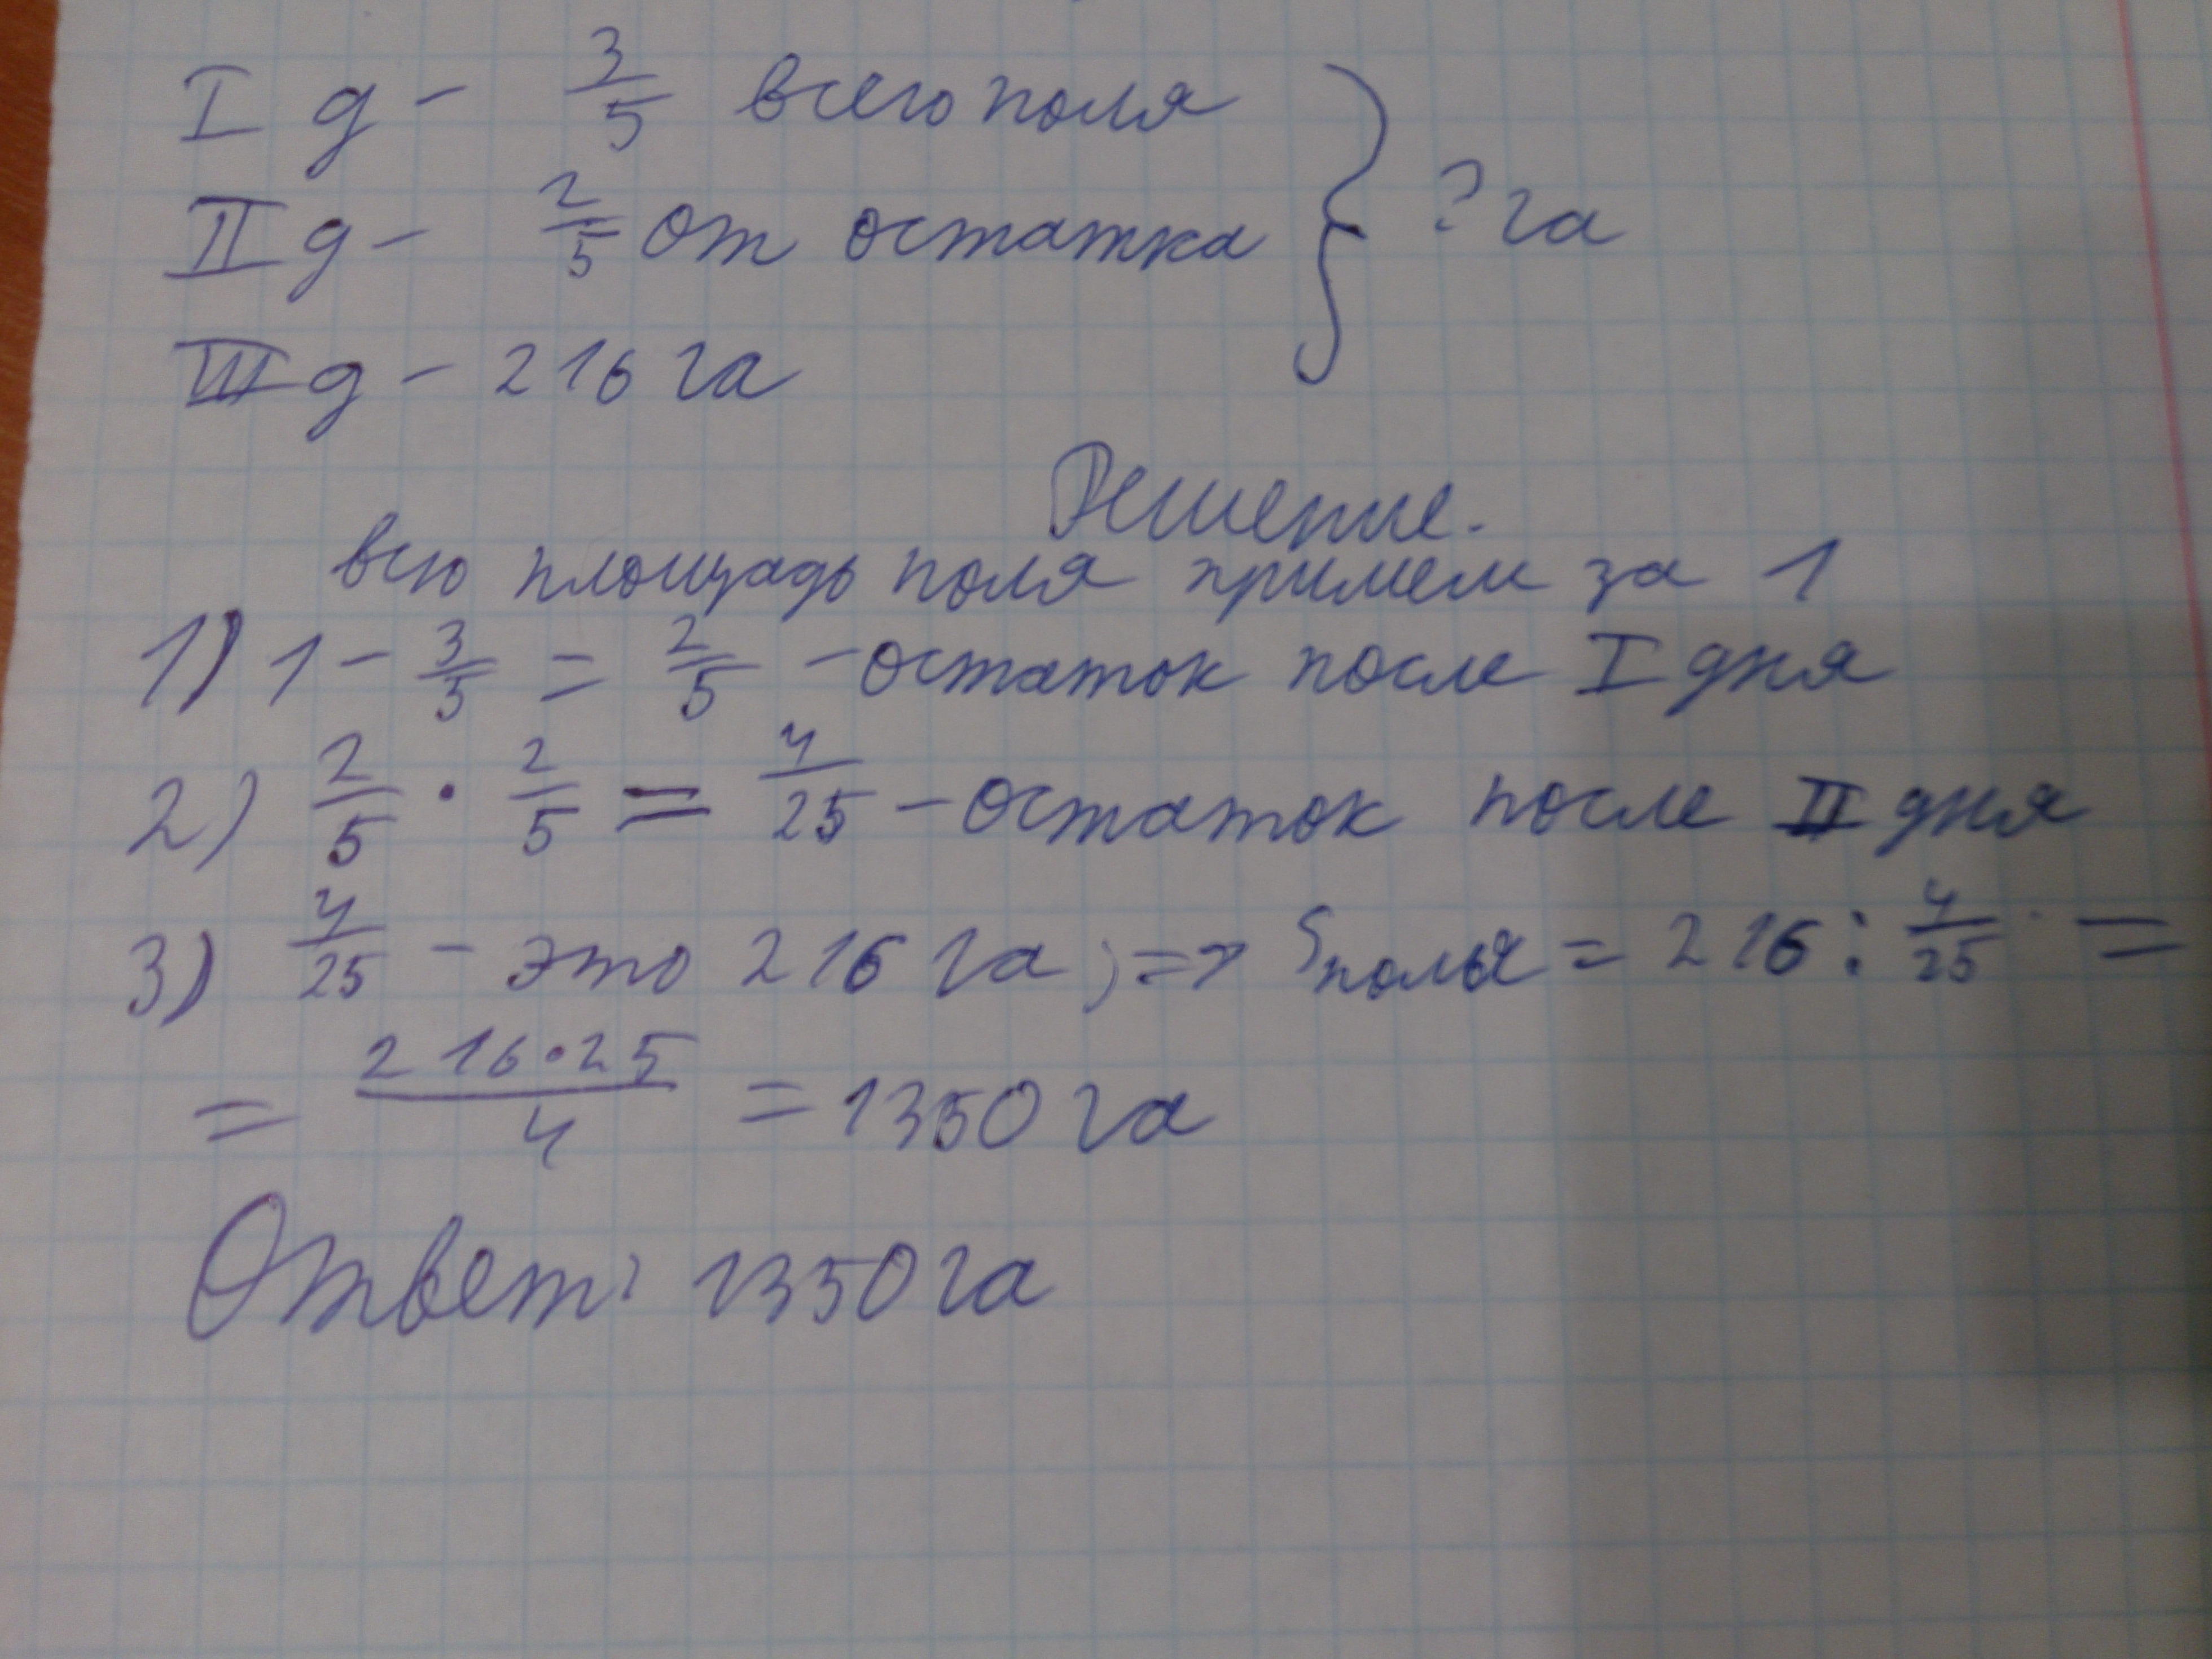 I д - 3/5 всего поля
II д - 2/5 от остатка } ? га
III д - 216 га
Решение.
всю площадь поля примем за 1
1) 1 - 3/5 = 2/5 - остаток после I дня
2) 2/5 · 2/5 = 4/25 - остаток после II дня
3) 4/25 - это 216 га ; => S поля = 216 : 4/25 =
= 216·25/4 = 1350 га
Ответ: 1350 га